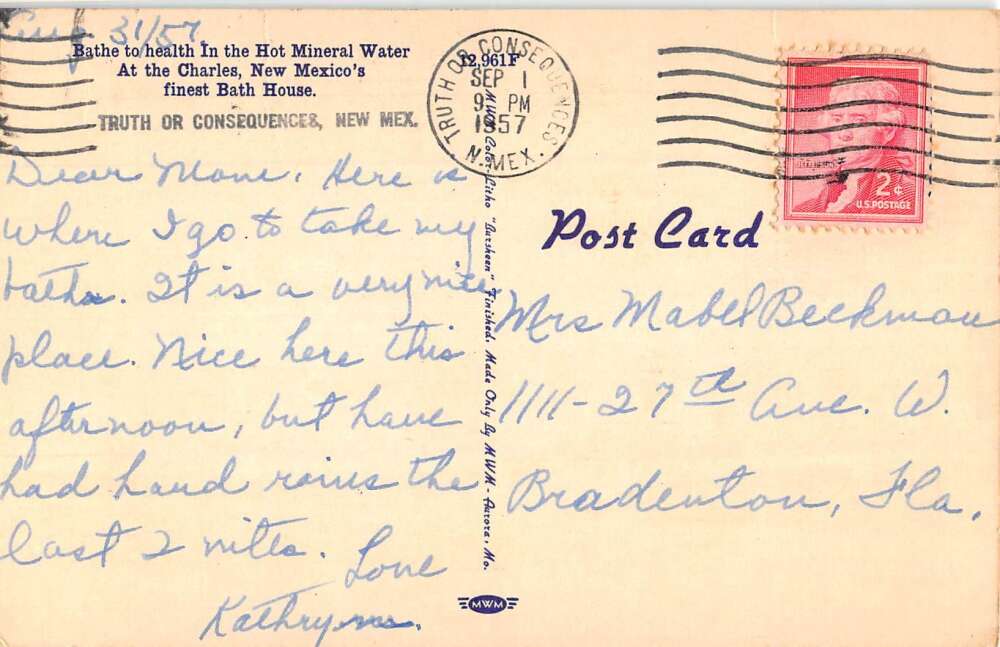 Aug 31/57
Bathe to health In the Hot Mineral Water
At the Charles, New Mexico's
finest Bath House.
TRUTH OR CONSEQUENCES, NEW MEX.
Dear Mone, Here is
where I go to take my
baths. It is a very nice
place. Nice here this
afternoon, but have
had hard rains the
last 2 nites. Love
Kathryn.
12,961F
MWM Color-Litho "Larsheen" Finished. Made Only By MWM - Aurora, Mo.
MWM
TRUTH OR CONSEQUENCES
SEP 1
9 PM
1957
N. MEX.
2¢
U.S. POSTAGE
Post Card
Mrs Mabel Beckman
1111-27th Ave. W.
Bradenton, Fla.